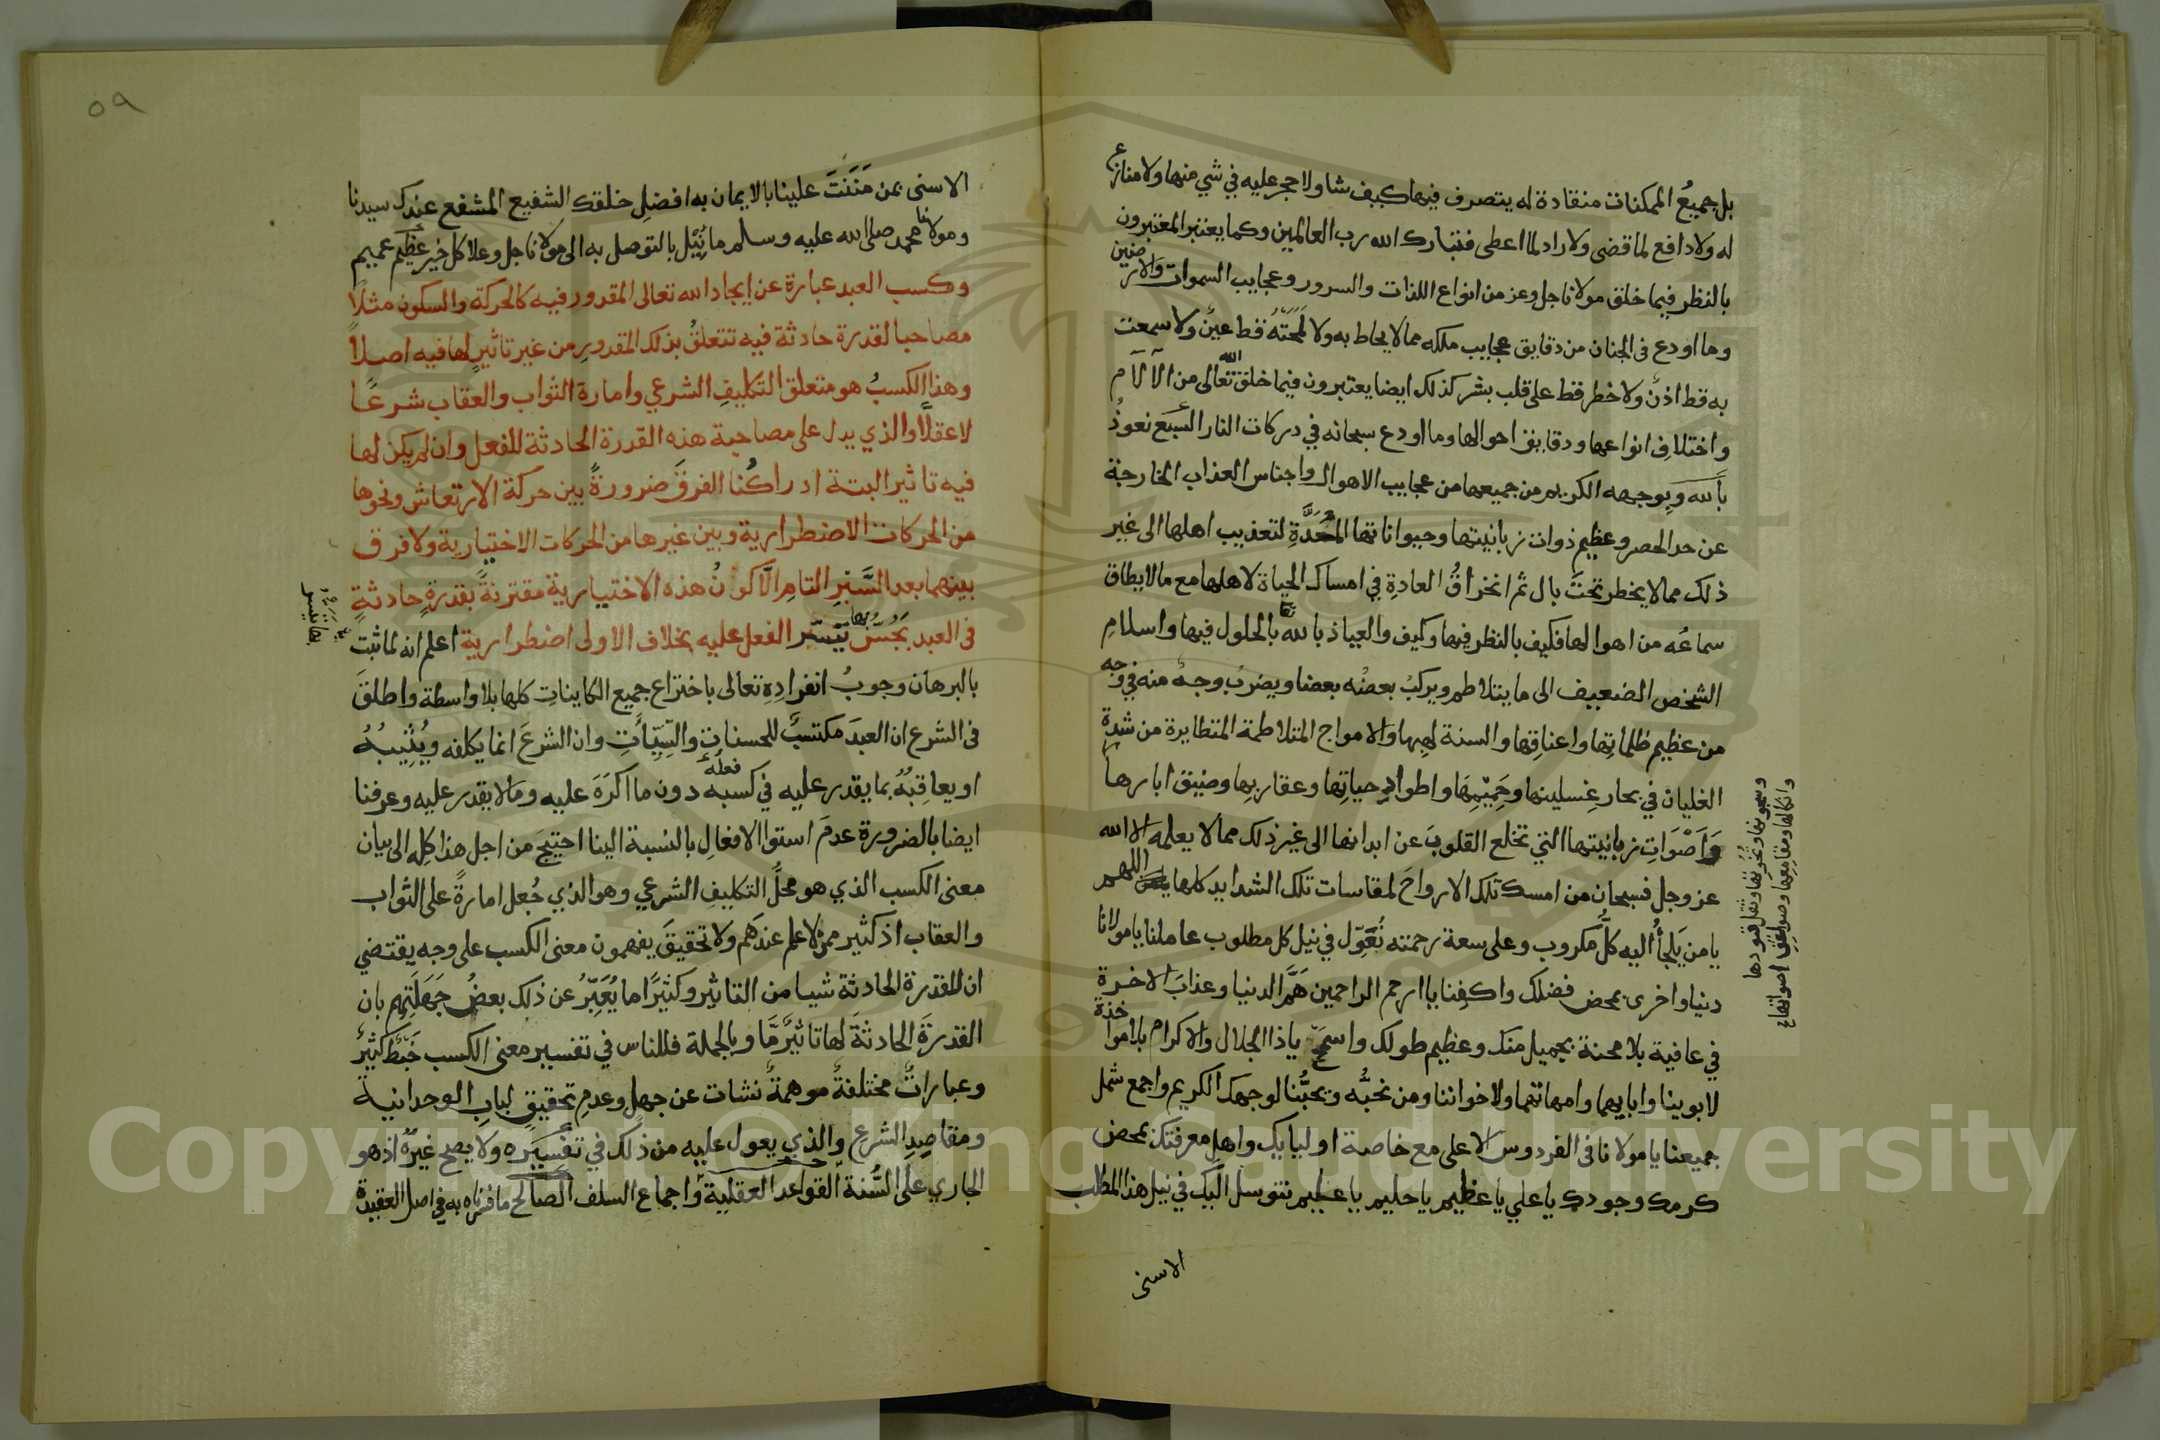 بل جميعُ الممكنات منقادة له يتصرف فيها كيف شا ولا حجر عليه في شي منها ولا منازع
له ولا دافع لما قضى ولا راد لما اعطى فتبارك الله رب العالمين وكما يعتبر المعتبرون
بالنظر فيما خلق مولانا جل وعز من انواع اللذات والسرور وعجايب السموات والارضين
وما اودع فى الجنان من دقايق عجايب ملكه مما لا يحاط به ولا لمحَتْهُ قط عينٌ ولا سمعت
به قط اذنٌ ولا خطر قط على قلب بشر كذلك ايضا يعتبرون فيما خلق الله تعالى من الآلآم
واختلافِ انواعها ودقايق احوالها وما اودع سبحانه في دركات النار السَّبع نعوذُ
بالله وبوجهه الكريم من جميعها من عجايب الاهوال واجناس العذاب الخارجة
عن حد الحصر وعظيم ذوات زبانيتها وحيواناتها المُعَدَّةِ لتعذيب اهلها الى غير
ذلك مما لا يخطر تحتَ بال ثم انخراقُ العادةِ في امساك الحياة لاهلها مع ما لا يطاق
سماعُه من اهوالها فكيف بالنظر فيها وكيف والعياذ بالله تعا بالحلول فيها واسلامِ
الشخص الضعيف الى ما يتلاطم ويركبُ بعضُه بعضا ويضربُ وجهٌ منه في وجه
من عظيم ظلماتِها واعناقِها والسنة لهبها والامواج المتلاطمة المتطايرة من شدةِ
الغليان في بحار غِسلينها وحَمِيْمِهَا واطوادِ حياتِها وعقاربِها وضيق ابارها
وَاَصْوَاتِ زبانيتها التي تخلع القلوبَ عن ابدانها الى غير ذلك مما لا يعلمه الا الله
عز وجل فسبحان من امسك تلك الارواحَ لمقاسات تلك الشدايد كلها اللهم
يا من يَلجأُ اليه كلُّ مكروب وعلى سعة رحمته نُعَوِّل في نيل كل مطلوب عاملنا يا مولانا
دنيا واخرى بمحض فضلك واكفِنا يا ارحم الراحمين هَمَّ الدنيا وعذابَ الاخرة
في عافية بلا محنة بجميل منك وعظيم طولك واسمح ياذا الجلال والاكرام بلا مواخذة
لابوينا وابايهما وامهاتهما ولاخواننا ومن نحبُّه ويحبُّنا لوجهك الكريم واجمع شمل
جميعنا يا مولانا فى الفردوس الاعلى مع خاصة اوليايك واهل معرفتك بمحض
كرمك وجودك يا علي يا عظيم يا حليم يا عظيم نتوسل اليك في نيل هذا المطلب
الاسنى
وسجونها
وانكالها ومقامعها
٥٩
الاسنى بمن مَنَنتَ علينا بالايمان به افضلِ خلقك الشفيع المشفع عندك سيدنا
ومولانا محمد صلى الله عليه وسلم ما نِيْل بالتوصل به الى مولانا جل وعلا كل خير عظيم عميم
وكسب العبد عبارة عن ايجاد الله تعالى المقدور فيه كالحركة والسكون مثلاً
مصاحبا لقدرة حادثة فيه تتعلقُ بذلك المقدورِ من غير تاثيرٍ لها فيه اصلاً
وهذا الكسبُ هو متعلق التكليفِ الشرعي وامارة الثواب والعقاب شرعًا
لا عقلًا والذي يدل على مصاحبة هذه القدرة الحادثة للفعل وان لم يكن لها
فيه تاثير البتة ادراكُنا الفرقَ ضرورةً بين حركة الارتعاش ونحوها
من الحركات الاضطرارية وبين غيرها من الحركات الاختيارية ولا فرق
بينهما بعد السَّبْرِ التامِ الَّا كونُ هذه الاختيارية مقترنةً بقدرةٍ حادثةٍ
فى العبد يَحُسُّ بها تَيَسُّر الفعل عليه بخلاف الاولى اضطرارية اعلم انه لما ثبت
بالبرهان وجوبُ انفرادِهِ تعالى باختراع جميع الكاينات كلها بلا واسطة واطلقَ
فى الشرع ان العبدَ مكتسبٌ للحسنات والسَّيِّآتِ وان الشرعَ انما يكلفه ويُثِيبُهُ
او يعاقِبُهُ بما يقدر عليه في كسبه فعله دون ما اكرَهَ عليه وما لا يقدر عليه وعرفنا
ايضا بالضرورة عدمَ استوا الافعالِ بالنسبة الينا احتيجَ من اجل هذا كلِه الى بيان
معنى الكسب الذي هو محلُّ التكليف الشرعي وهو الذي جُعل امارةً على الثواب
والعقاب اذ كثير ممن لا علم عندهم ولا تحقيقَ يفهمون معنى الكسب على وجه يقتضي
ان للقدرة الحادثة شيا من التاثير وكثيرًا ما يُعَبِّرُ عن ذلك بعضُ جَهَلَتِهِم بان
القدرةَ الحادثةَ لها تاثيرٌ مَّا وبالجملة فللناس في تفسير معنى الكسب خَبْطٌ كثيرٌ
وعباراتٌ مختلفةٌ موهمةٌ نشات عن جهل وعدمِ تحقيق لباب الوحدانية
ومقاصِدِ الشرع والذي يعول عليه من ذلك في تفسيره ولا يصح غيرُه اذ هو
الجاري على السُّنة القواعد العقلية واجماع السلف الصالح ما فسرناه به في اصل العقيدة
Copyright © King Saud University